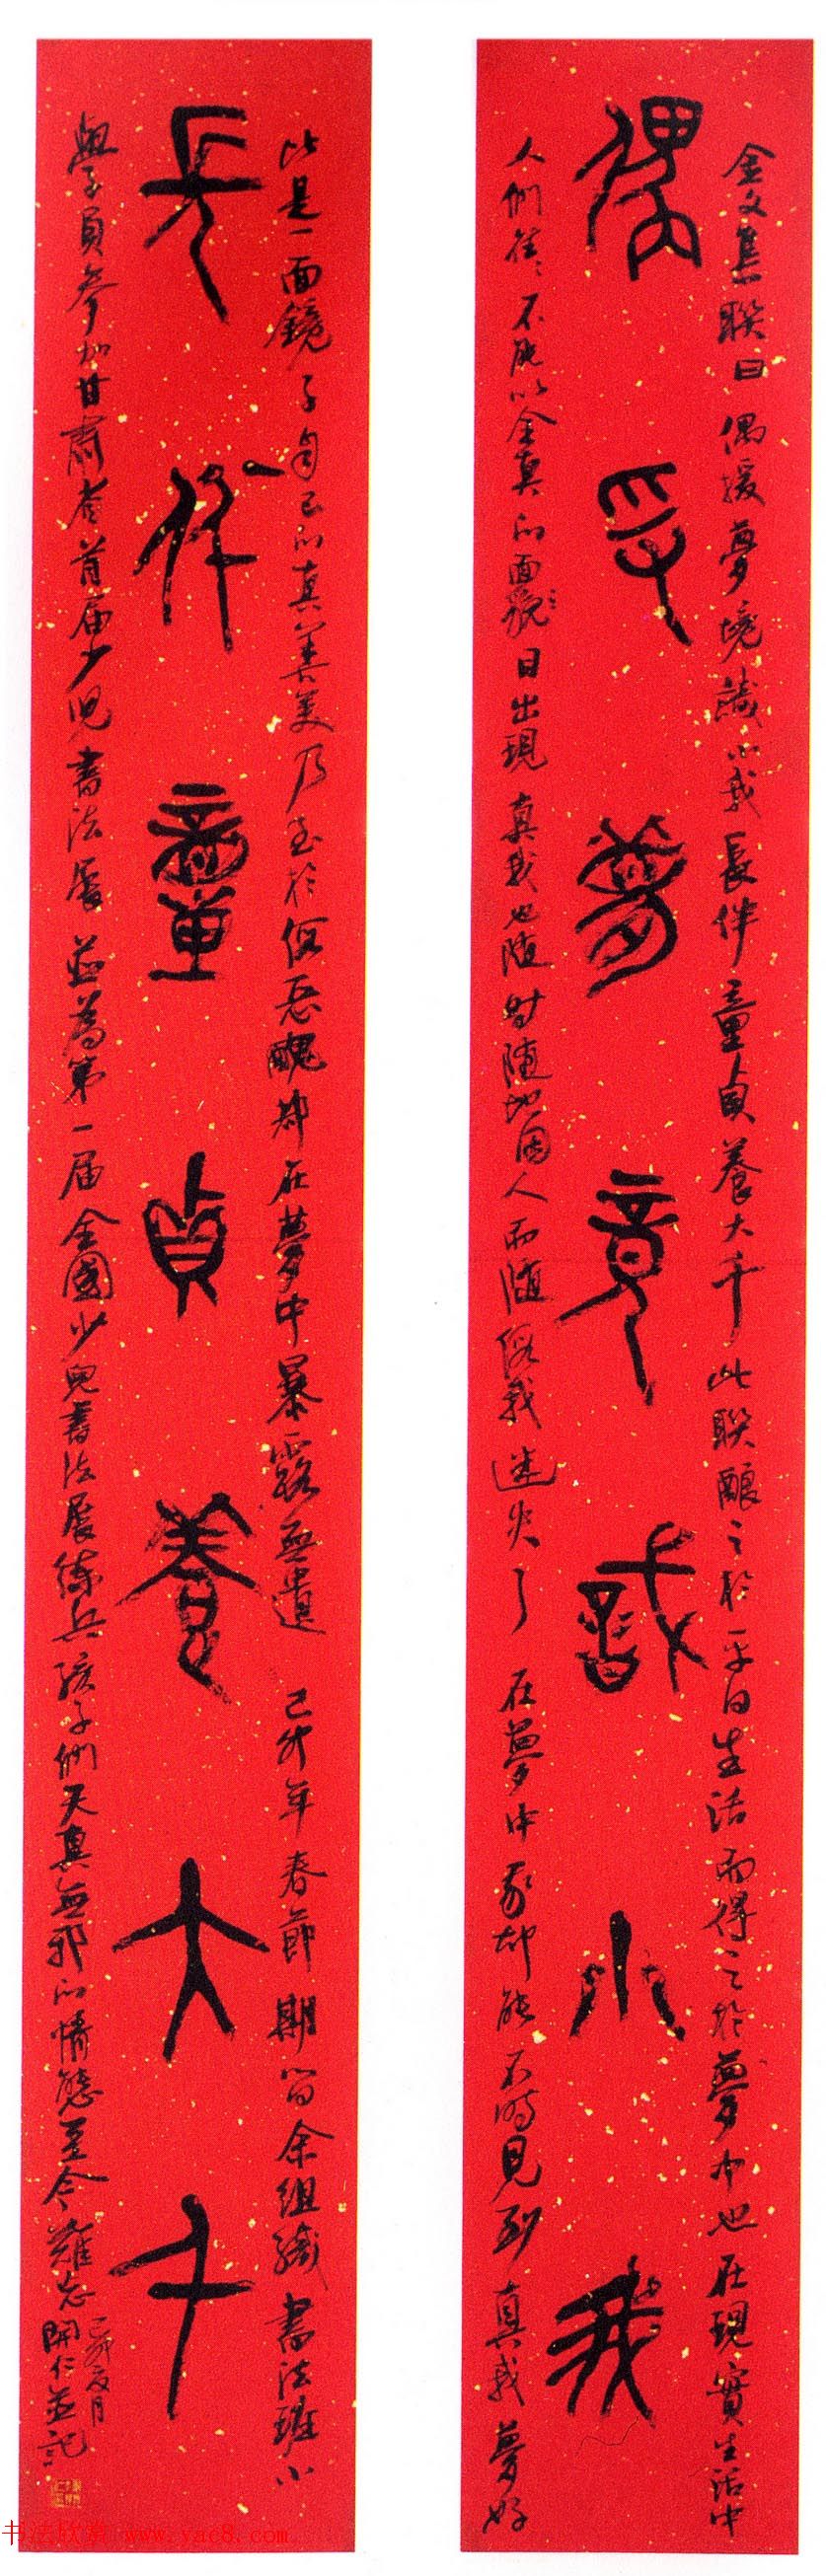 金文集联曰 偶援夢境識小我 長伴童貞養大千 此联釀之於平日生活而得之於夢中也 在現實生活中
偶受夢竟識小我
人們往々不能以全真的面貌々日出現 真我也随时随地因人而随俗我迷失了 在夢中我却能不時見到真我 夢好
比是一面鏡子自己的真善美乃至於假恶醜都在夢中暴露無遺 己卯年春節期間余組織書法班小
長伴童貞養大千
學子員参加甘肅省首届少兒書法展 並為第一届全國少兒書法展練兵 孩子們天真無邪的情態至今難忘
己卯夏月
開仁並記
书法欣赏 www.yac8.com